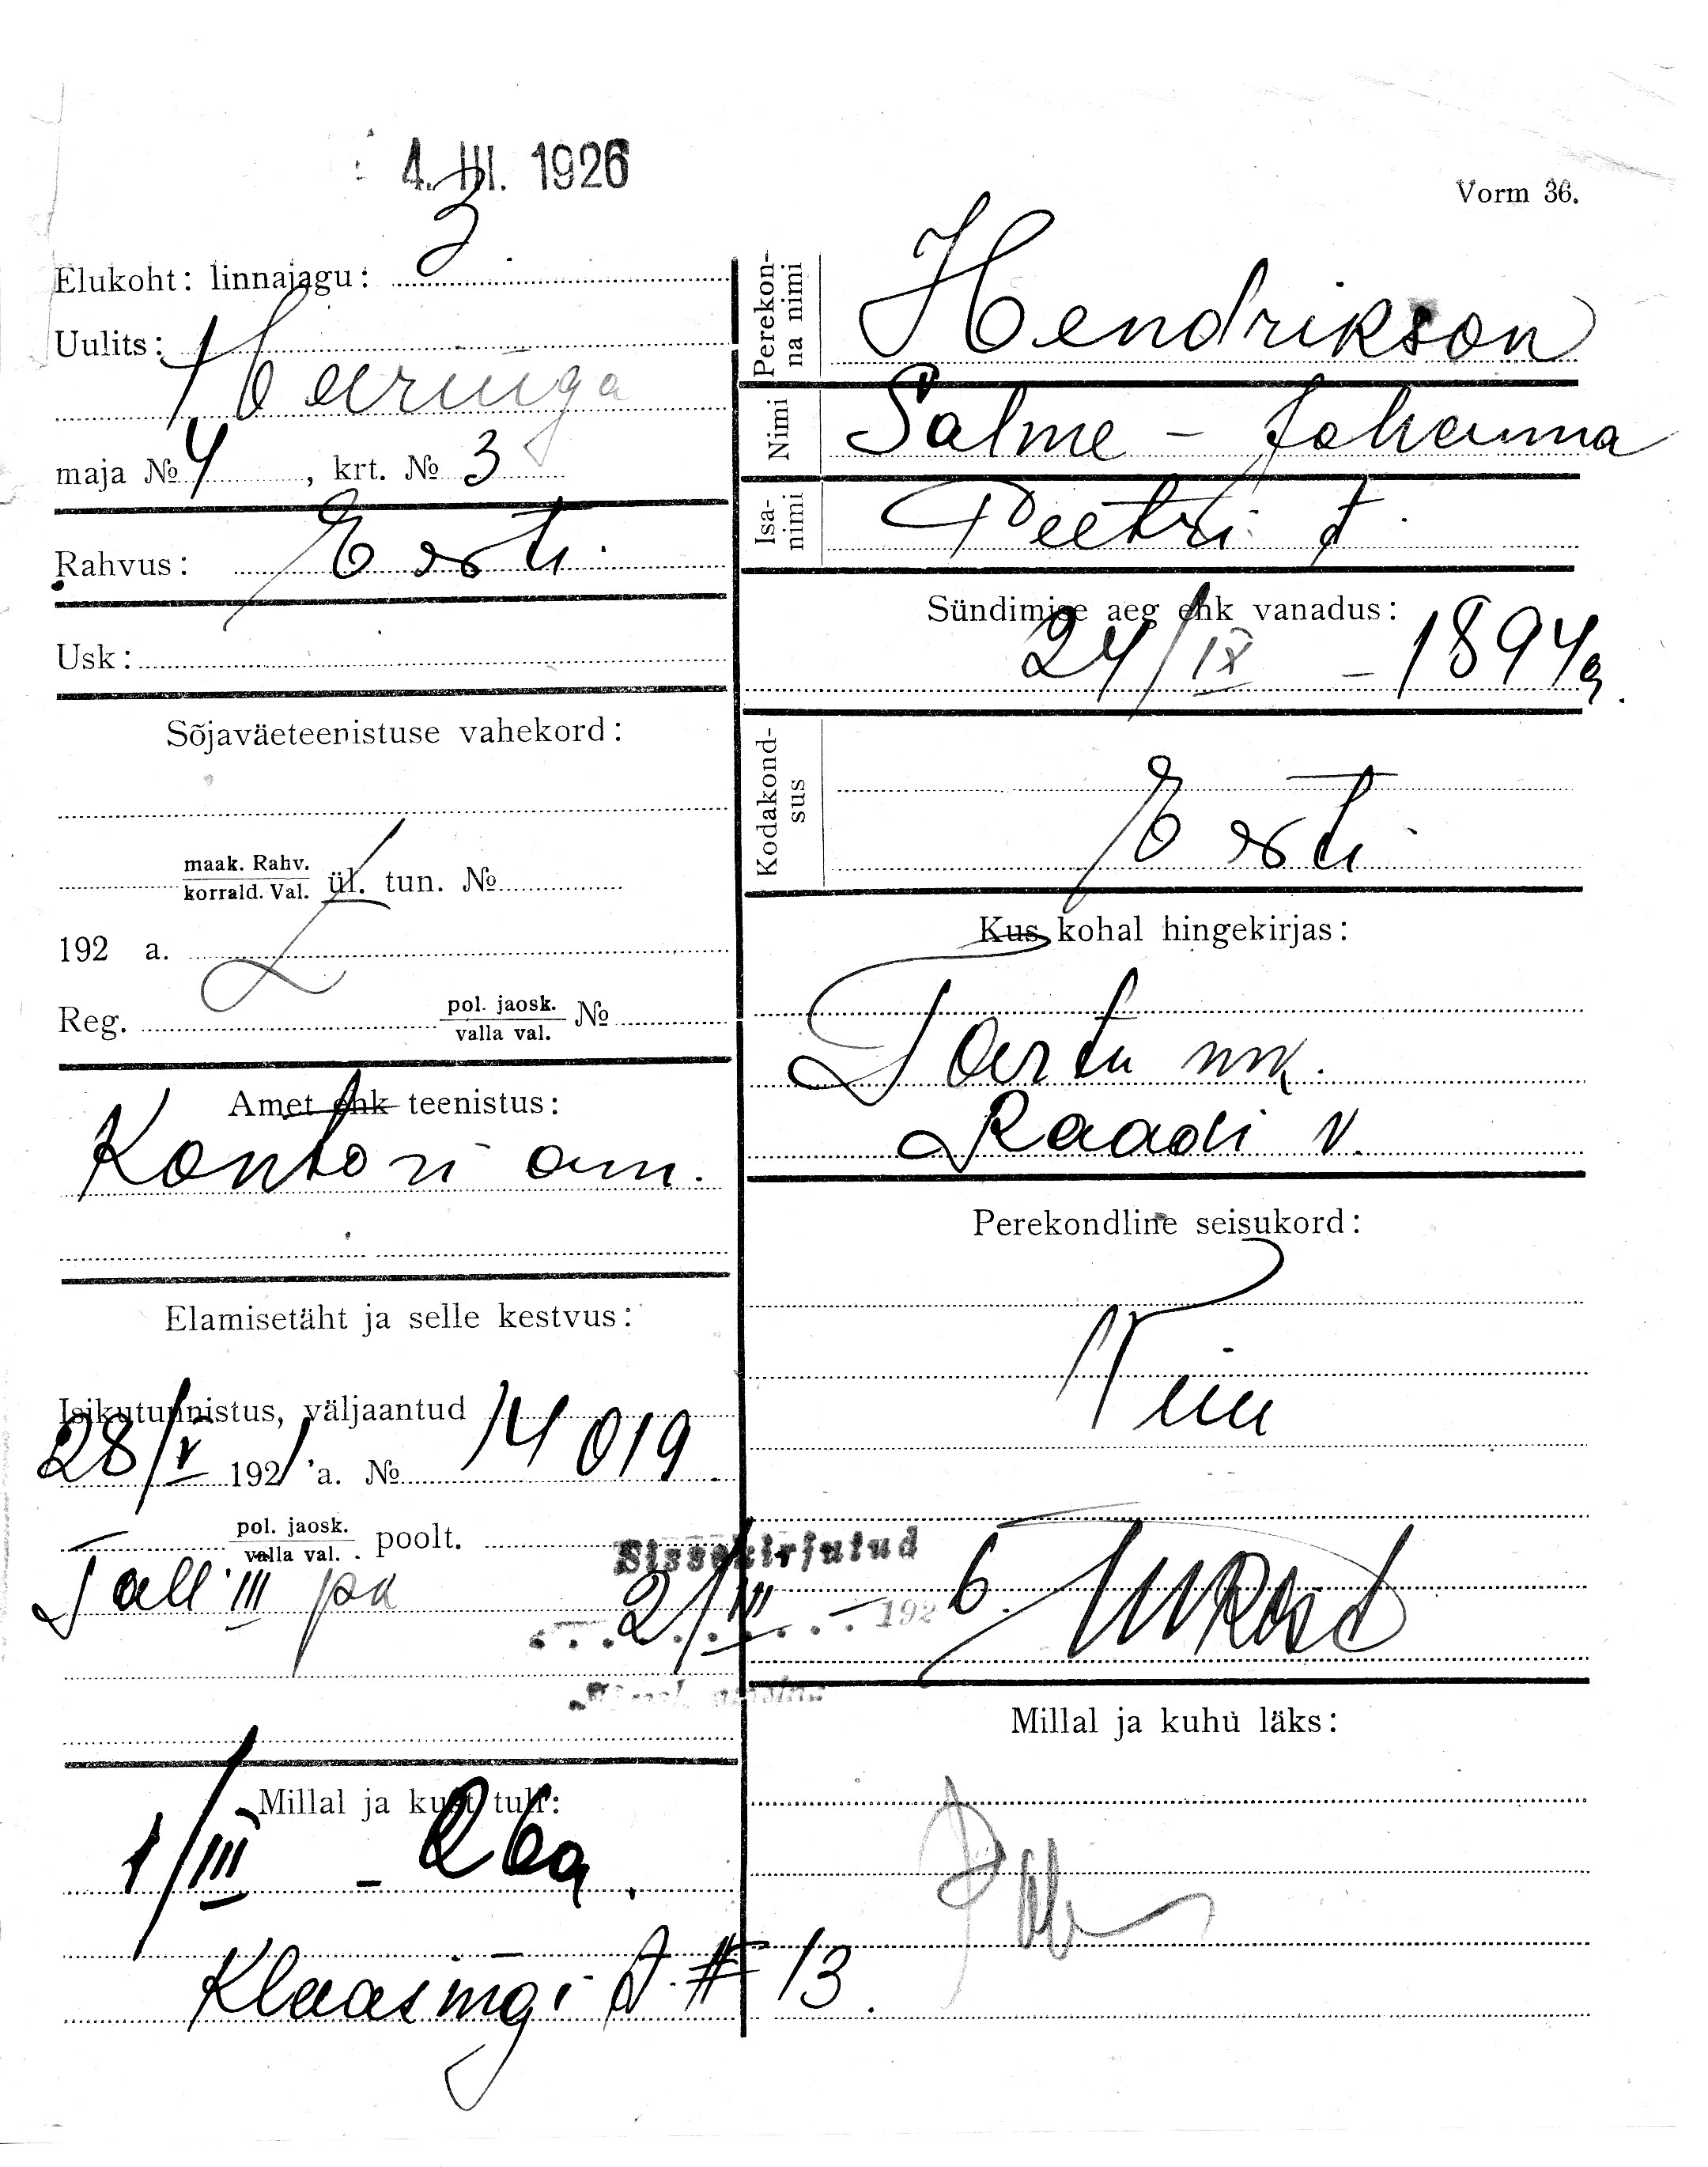 4. III. 1926
Vorm 36.
Elukoht: linnajagu: 3
Uulits: Heeringa
maja № 4, krt. № 3
Rahvus: Eesti
Usk:
Sõjaväeteenistuse vahekord:
maak. Rahv.
korrald. Val. ül. tun. №
192 a.
Reg. pol. jaosk.
valla val. №
Amet ehk teenistus:
Kontori am.
Elamisetäht ja selle kestvus:
Isikutunnistus, väljaantud
28/V 1921 a. № 14019
pol. jaosk.
valla val. poolt.
Tall. III jsk
Millal ja kust tuli:
1/III - 26a.
Klaasingi t. # 13.
Perekonna nimi
Hendrikson
Nimi
Salme - Johanna
Isanimi
Peetri t.
Sündimise aeg ehk vanadus:
24/IX - 1894a.
Kodakondsus
Eesti
Kus kohal hingekirjas:
Tartu mk.
Raadi v.
Perekondline seisukord:
Sissekirjutud
2/III - 1926.
Millal ja kuhu läks: